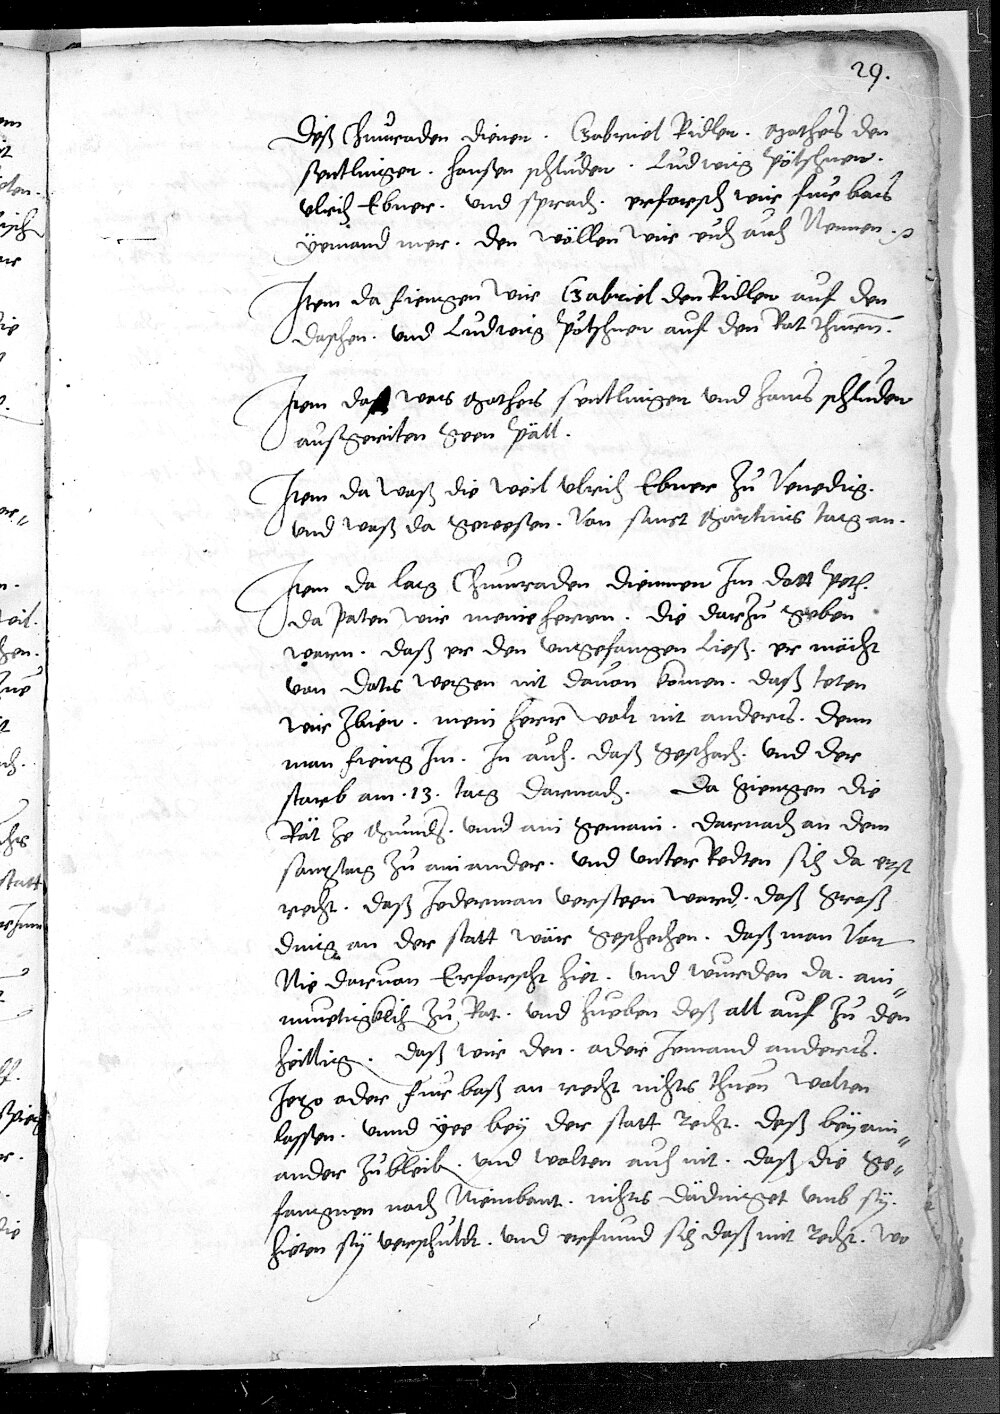 29.
deß Chunraden diener. Gabriel Ridler. Matheis den
sentlinger. Hansen schluder. Ludwig Pötschner.
Ulrich Ebner. und sprach. erforsch wir fur bas
yemand mer. den wöllen wir euch auch Nennen.
Item da fiengen wir Gabriel den Ridler auf den
daschen. und Ludwig Pötschner auf den Rat thurn.
Item da was Matheis sentlinger und hans schluder
außgeriten geen Päll.
Item da waß die weil Ulrich Ebner zu Venedig.
und waß da gewesen. Von sanct Martins tag an.
Item da lag Chunraden diennner Im dott Peth.
da paten wir meine herrn. die darzu geben
warn. daß er den ungefangen ließ. er möcht
von dots wegen nit davon komen. daß teten
wir zbier. mein herr wolt nit anders. denn
man fieng Im. In auch. daß geschach. und der
starb am .13. tag darnach. Da giengen die
Rät ze und ain gemain. darnach an dem
samstag zu ainander. und unter Redten sich da erst
recht. daß Jederman versteen ward. daß groß
ding an der statt wär geschechen. daß man Vor
Nie darvon Erforscht hiet. und wurden da. ain=
muetigklich zu Rat. und hueben deß all auf zu den
heillig. daß wir den. oder Jemand anders.
Jezo oder fur baß an recht nichts thuen wolten
lassen. unnd yee bey der statt recht. deß bey ain=
ander zubleib. und wolten auch nit. daß die ge=
fangnen nach Niembant. nichts dädinget umb sy.
hieten sy verschuldt. und erfund sich daß mit recht. wo